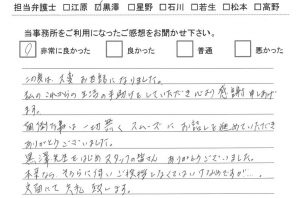 担当弁護士 □江原 ☑黒澤 □星野 □石川 □若生 □松本 □高野
当事務所をご利用になったご感想をお聞かせ下さい。
非常に良かった 良かった 普通 悪かった
この度は、大変お世話になりました。
私のこれからの生活の手助けをしていただき心より感謝申しあげ
ます。
面倒な事は一切無くスムーズにお話しを進めていただき
ありがとうございました。
黒澤先生をはじめスタッフの皆さん ありがとうございました。
本来なら、そちらに伺いご挨拶しなくてはいけないのですが...、
文面にて失礼致します。